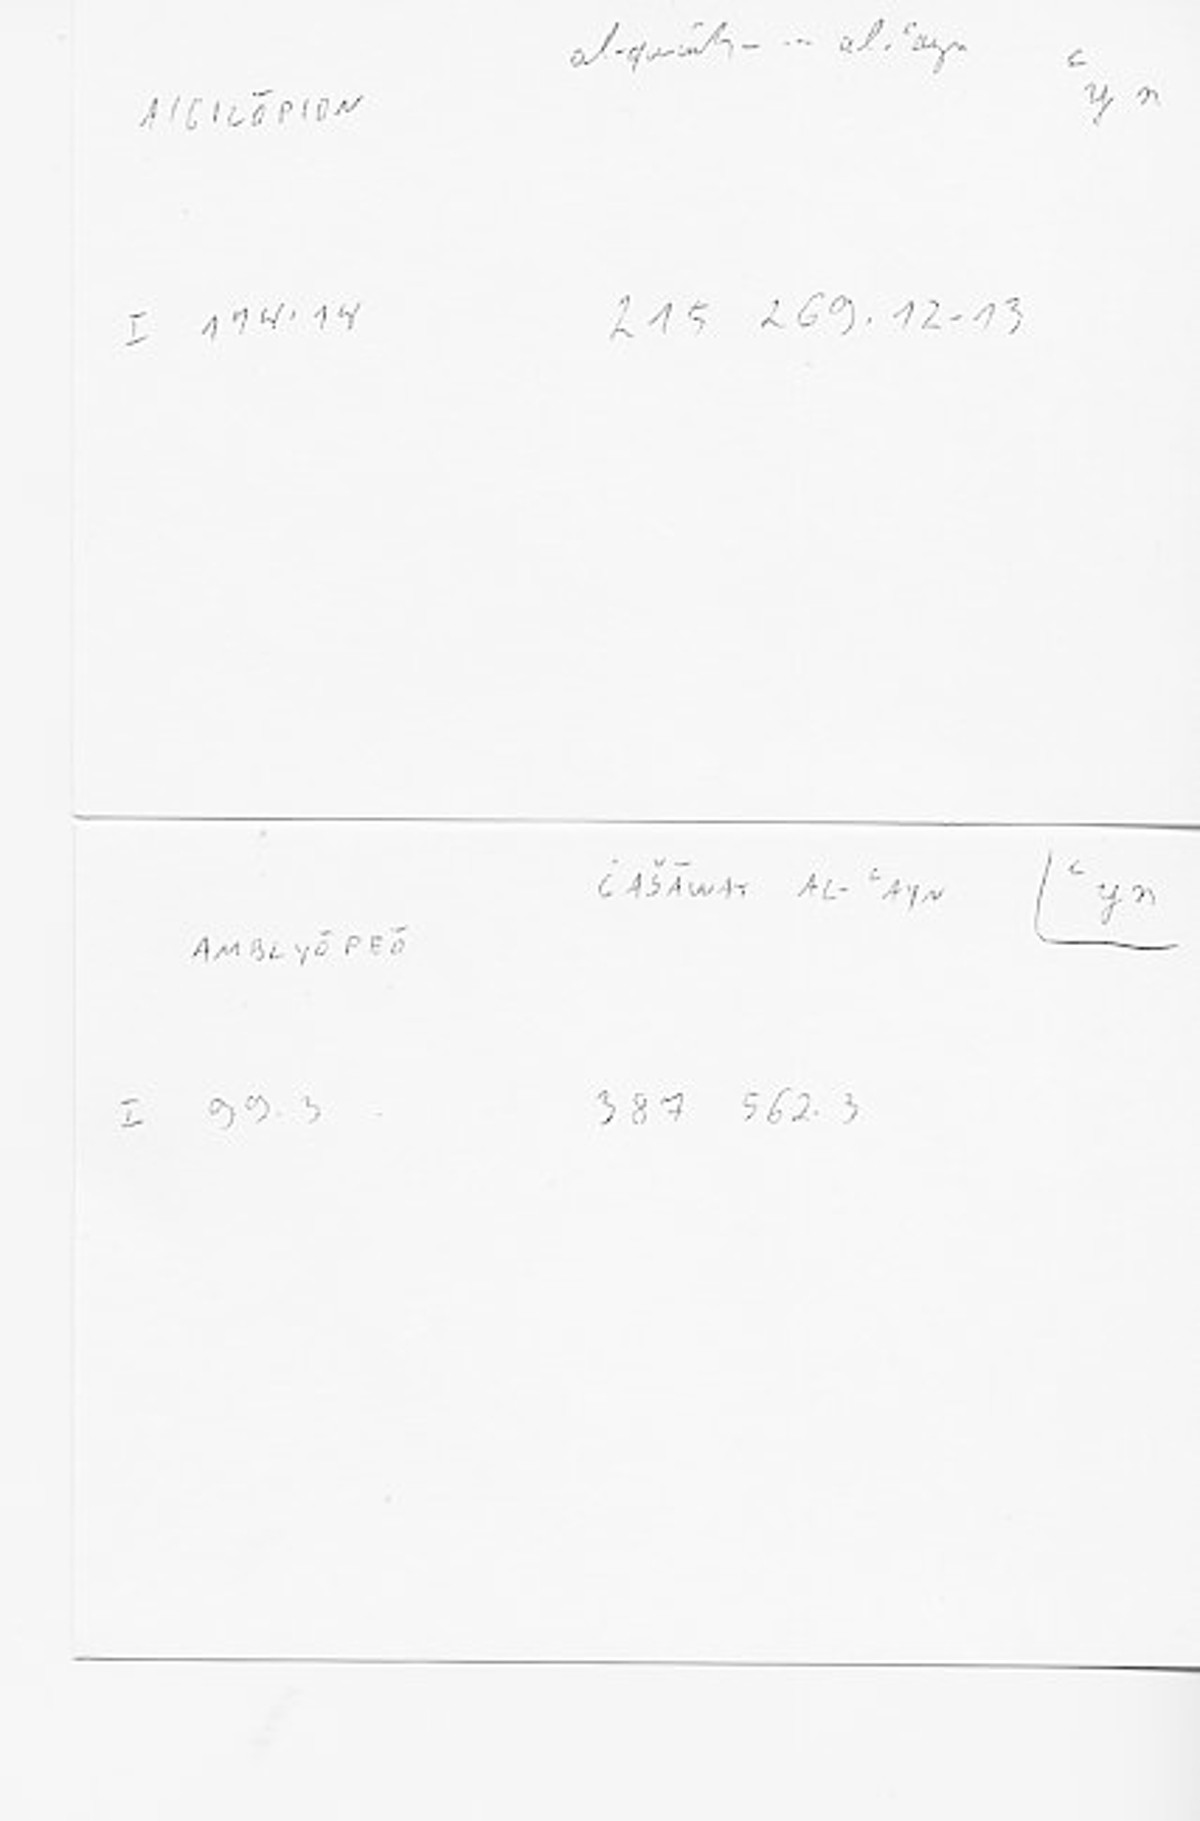 al-qurūḥ- -- al-ʿayn
ʿyn
AIGILŌPION
I 174.14 215 269.12-13
ĠAŠĀWAT AL-ʿAYN
ʿyn
AMBLYŌPEŌ
I 99.3 387 562.3